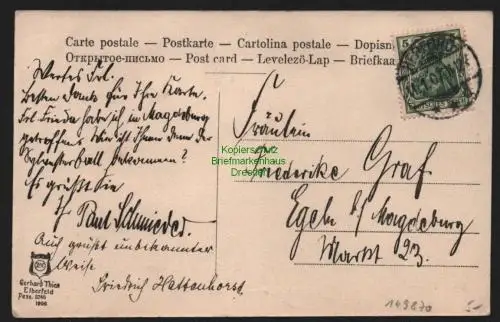 Carte postale — Postkarte — Cartolina postale — Dopisn
Открытое-письмо — Post card — Levelező-Lap — Briefkaa
5
Wertes Frl.
Besten Dank für Ihre Karte.
Frl. Frieda habe ich in Magdeburg
getroffen. Wie ist Ihnen denn der
Sylvesterball bekommen?
Es grüßt Sie
Paul Schmieder.
Auch grüßt unbekannter
Weise
Friedrich Hattenhorst
Fräulein
Frederike Graf
Egeln b/ Magdeburg
Markt 23.
Kopierschutz
Briefmarkenhaus
Dresden
Gerhard Thien
Elberfeld
1906
149870